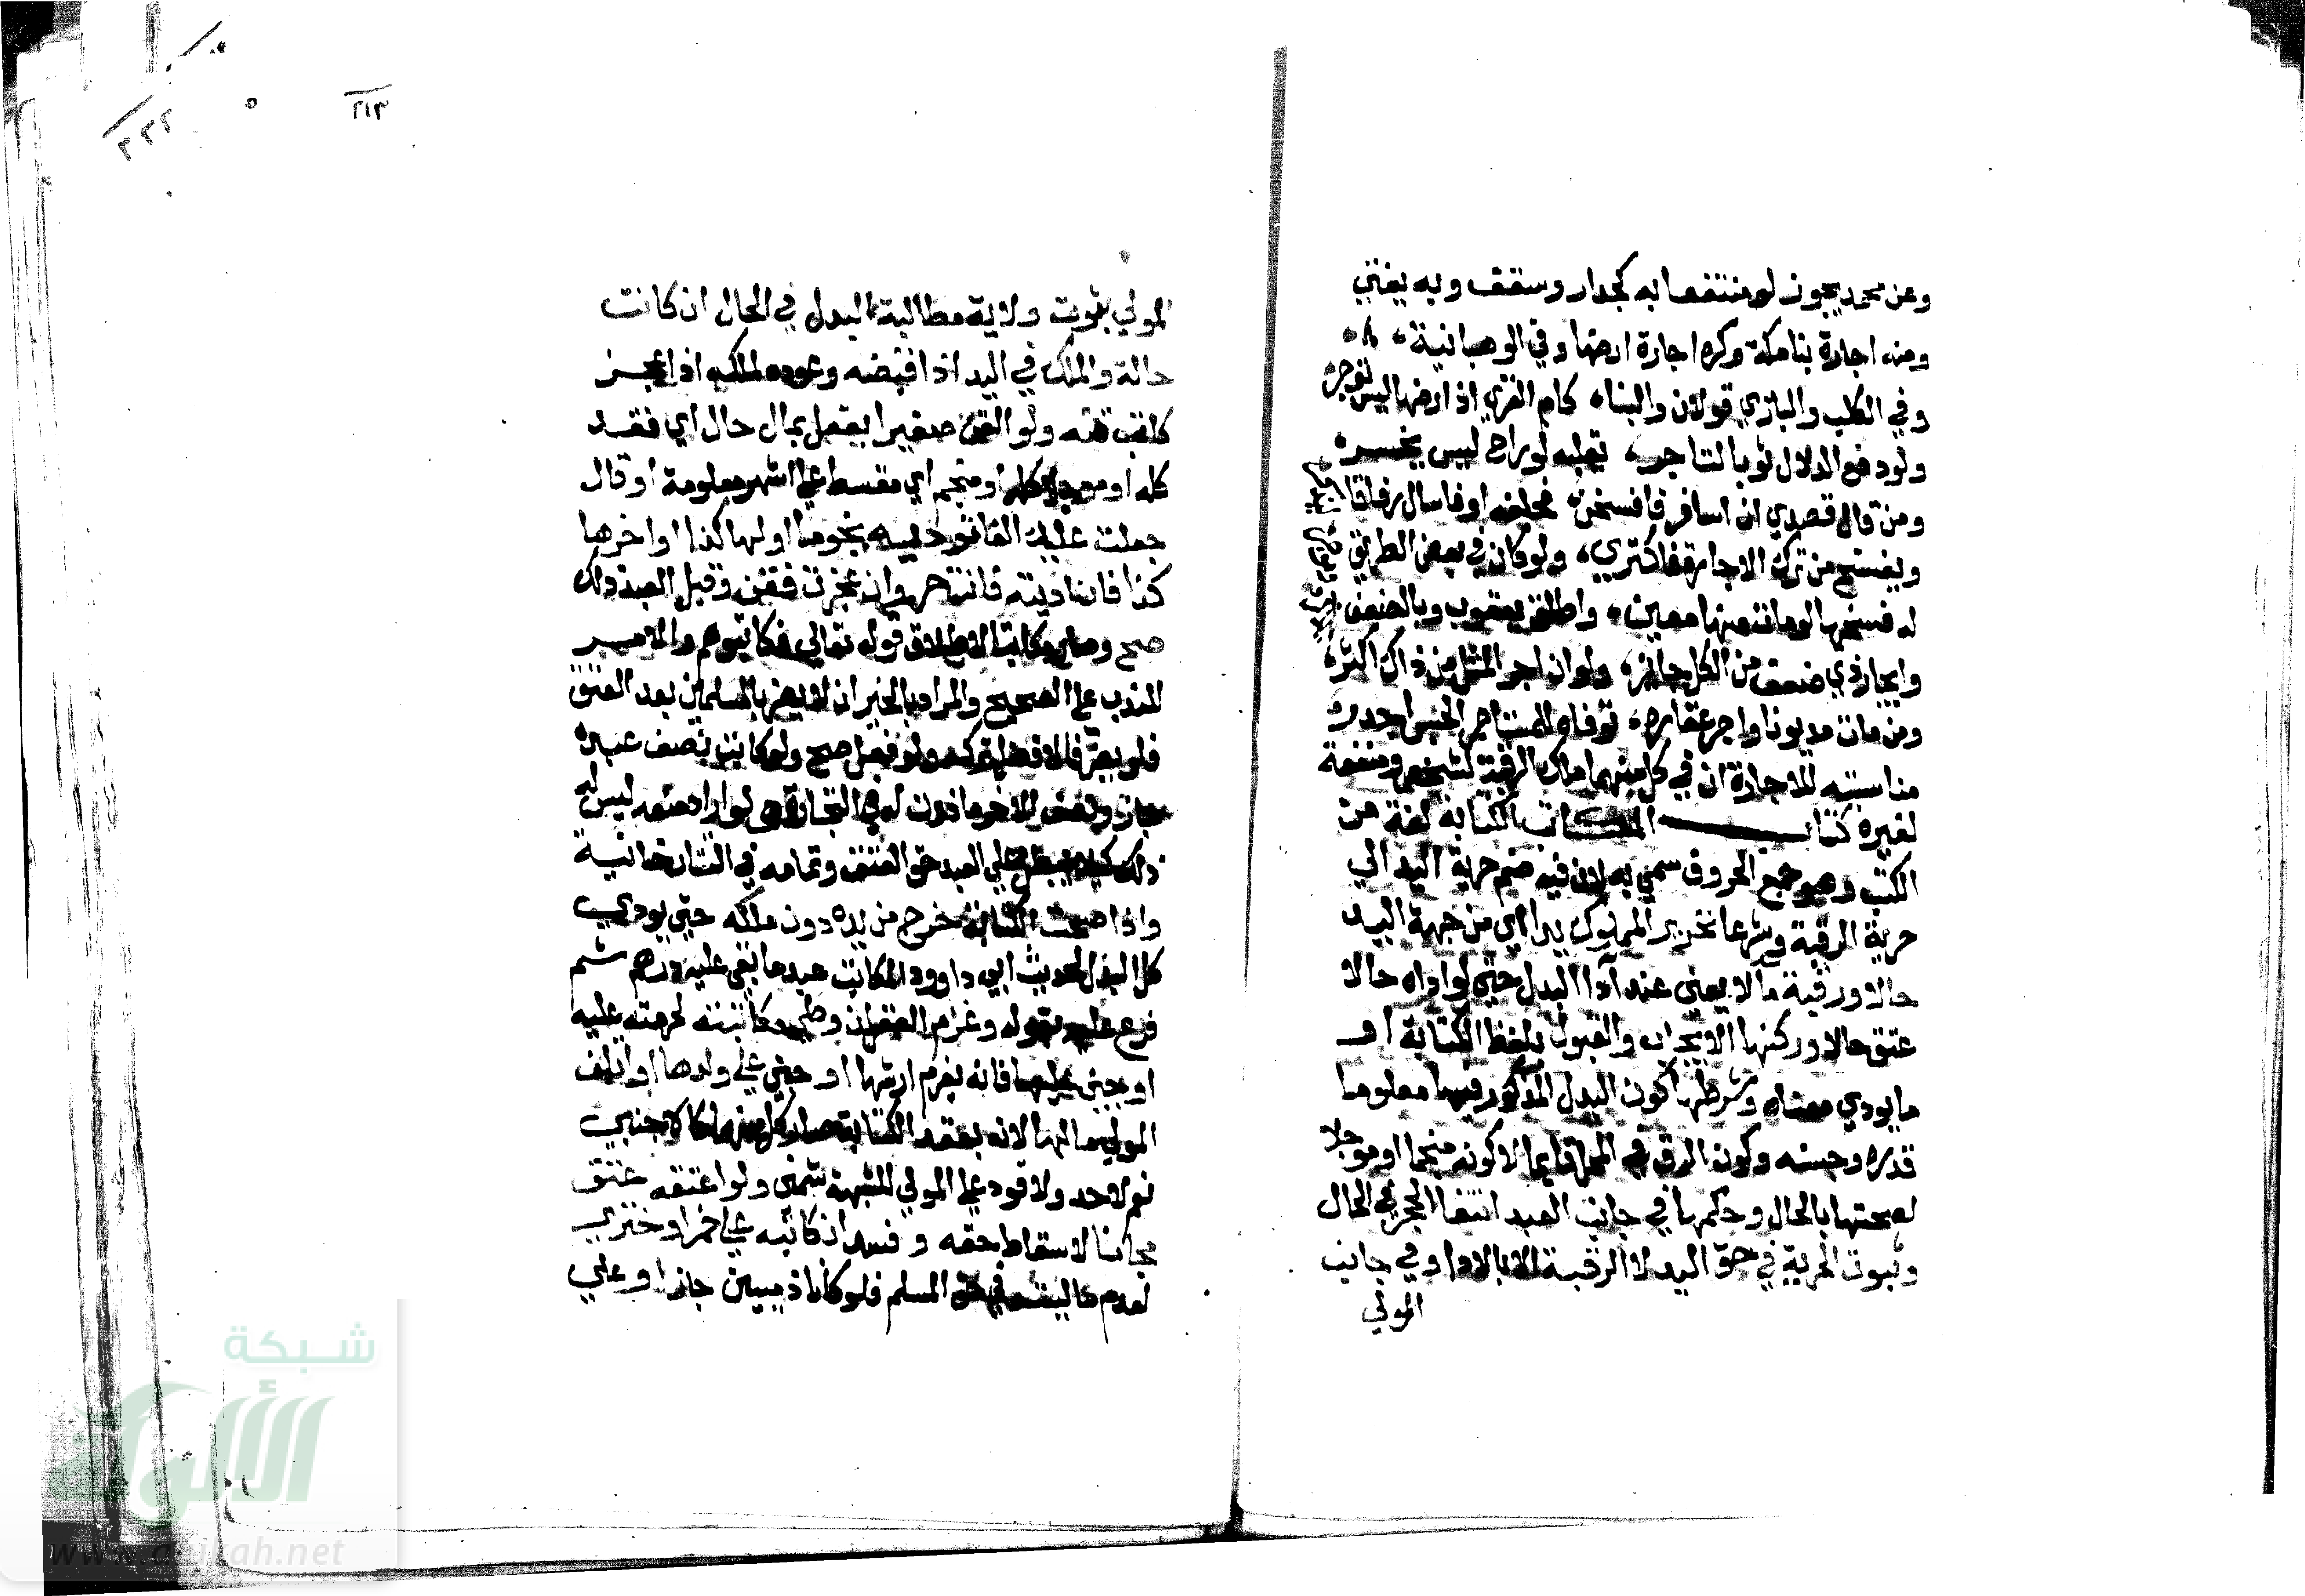 وعن محمد يجوز لو منتفعا به كجدار وسقف وبه يفتي
ومنه اجارة بنا مكة وكره اجارة ارضها وفي الوهبانية
وفي الكلب والبازي قولان والبناء كام القري اذ ارضها ليس توجر
ولو دفع الدلال ثوبا لتاجر يقلبه لو راح ليس يخسر
ومن قال قصدي ان اسافر فافسخن فحلفه او فاسال رفاقا
ويفسخ من ترك الاجارة فاكتري ولو كان في بعض الطريق
له فسخها لو مات منها معين واطلق يعقوب وبالضعف
وايجار ذي ضعف من الكل جائز ولو ان اجر المثل من ذاك اكثر
ومن مات مديونا واجر عقاره توفاه للمستاجر الحبس اجدر
مناسبته للاجارة ان في كل منهما ملك الرقبة لشخص ومنفعة
لغيره كتاب المكاتب الكتابة لغة من
الكتب وهو جمع الحروف سمي به لان فيه ضم حرية اليد الي
حرية الرقبة وشرعا تحرير المملوك يدا اي من جهة اليد
حالا ورقبة مآلا يعني عند آدا البدل حتي لو اداه حالا
عتق حالا وركنها الايجاب والقبول بلفظ الكتابة او
ما يودي معناه وشرطها كون البدل المذكور فيها معلوما
قدره وجنسه وكون الرق في المحل قايما لا كونه منجما او موجلا
لصحتها بالحال وحكمها في جانب العبد انتفا الحجر في الحال
وثبوت الحرية في حق اليد لا الرقبة الا بالادا وفي جانب
المولي
٢١٣
٢٢٢
المولي ثبوت ولاية مطالبة البدل في الحال ان كانت
حالة والملك في البدل اذا قبضه وعوده لملكه اذا عجز
كاتب قنه ولو القن صغيرا يعقل بمال حال اي نقد
كله او موجل كله او منجم اي مقسط علي اشهر معلومة او قال
جعلت عليك الفا توديه نجوما اولها كذا واخرها
كذا فان اديته فانت حر وان عجزت فقن وقبل العبد ذلك
صح وصار مكاتبا لاطلاق قوله تعالي فكاتبوهم والامر
للندب علي الصحيح والمراد بالخير ان لا يضر بالمسلمين بعد العتق
فلو يضر فالافضل تركه ولو فعل صح ولو كاتب نصف عبده
جاز ونصفه الاخر ماذون له في التجارة حتي لو اراد منعه ليس له
ذلك كيلا يبطل علي العبد حق العتق وتمامه في التتارخانية
واذا صحت الكتابة خرج من يده دون ملكه حتي يودي
كل البدل لحديث ابي داوود المكاتب عبد ما بقي عليه درهم ثم
فرع عليه بقوله وغرم العقر ان وطي مكاتبته لحرمته عليه
او جني عليها فانه يغرم ارشها او جني علي ولدها او اتلف
المولي مالها لانه بعقد الكتابة صار كل منهما كالاجنبي
نعم لا حد ولا قود علي المولي للشبهة شمني ولو اعتقه عتق
مجانا لاسقاط حقه وفسد ان كاتبه علي خمر او خنزير
لعدم ماليته في حق المسلم فلو كانا ذميين جاز او علي
شبكة
الألوكة
www.alukah.net